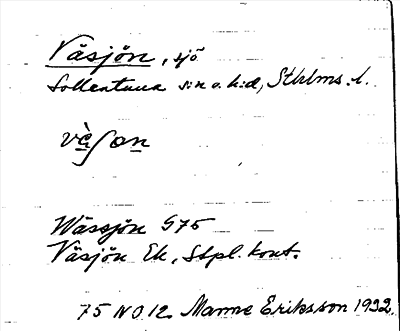 Väsjön, sjö
Sollentuna s:n o. h:d, Sthlms. l.
Wässjön 575
Väsjön Ek, Stpl. kont.
75 NO 12. Manne Eriksson 1932.